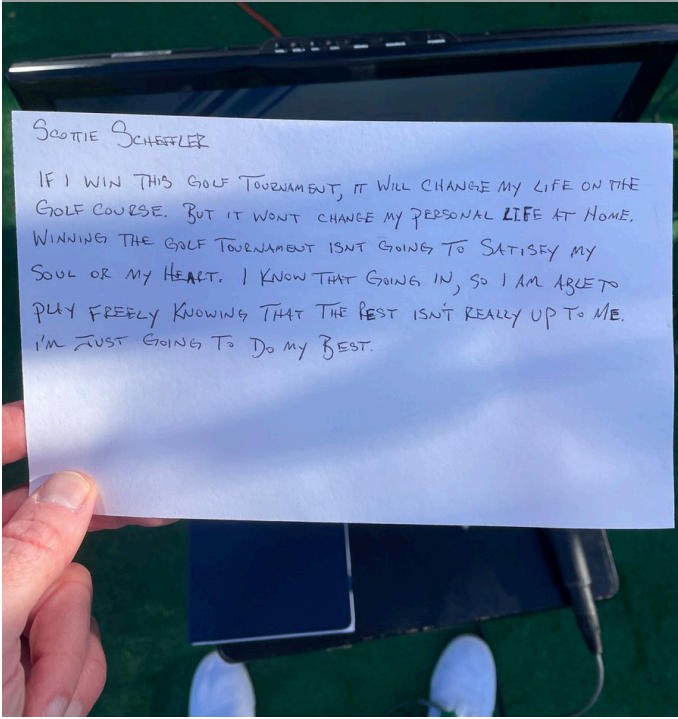 SCOTTIE SCHEFFLER
IF I WIN THIS GOLF TOURNAMENT, IT WILL CHANGE MY LIFE ON THE
GOLF COURSE. BUT IT WONT CHANGE MY PERSONAL LIFE AT HOME.
WINNING THE GOLF TOURNAMENT ISNT GOING TO SATISFY MY
SOUL OR MY HEART. I KNOW THAT GOING IN, SO I AM ABLE TO
PLAY FREELY KNOWING THAT THE REST ISN'T REALLY UP TO ME.
I'M JUST GOING TO DO MY BEST.